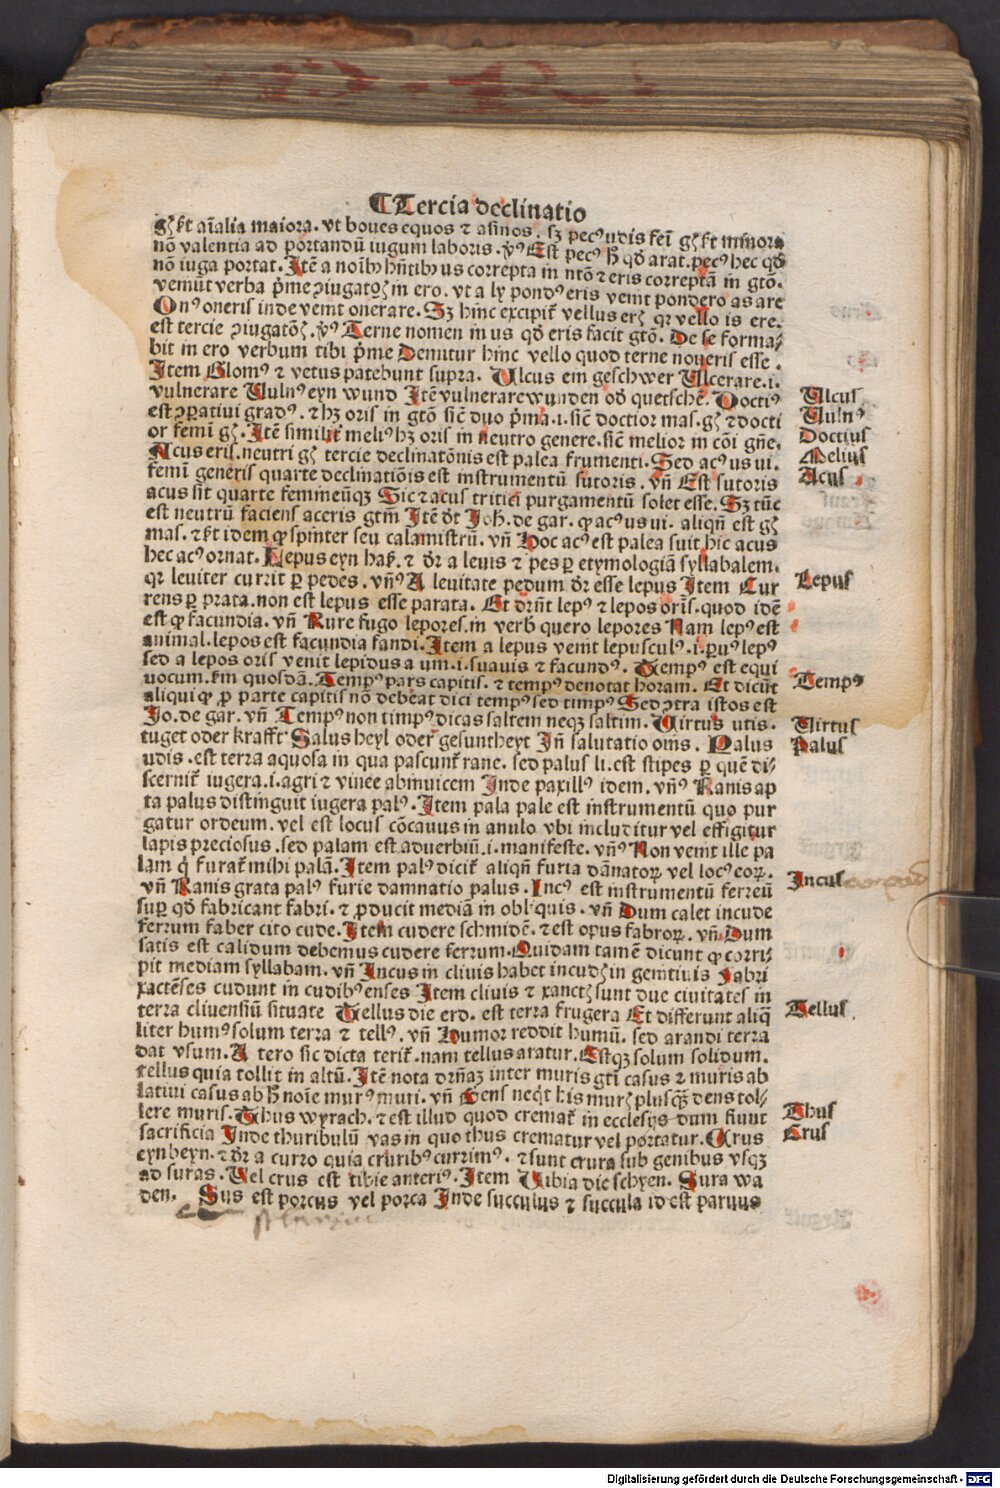 ¶Tercia declinatio
gꝫ sꝫt aīalia maiora. vt boues equos ⁊ asinos. sꝫ pecꝰudis femī gꝫ sꝫt minora
nō valentia ad portandū iugum laboris. vꝰ Est pecꝰ qd̄ arat. pecꝰ hec qd̄
nō iuga portat. Itē a noībꝰ hn̄tibꝰ us correpta in ntō ⁊ eris correptā in gtō.
vemūt verba p̄me ↄiugatōꝫ in ero. vt a ly pondꝰeris venit pondero as are
Onꝰoneris inde venit onerare. Sꝫ hinc excipit̄ vellus erꝫ qꝛ vello is ere.
est tercie ↄiugatōꝫ. vꝰ Terne nomen in us qd̄ eris facit gtō. De se forma⸗
bit in ero verbum tibi p̄me Demitur hinc vello quod terne noueris esse.
Item Glomꝰ ⁊ vetus patebunt supra. Ulcus ein geschwer Ulcerare.i.
vulnerare Uulnꝰeyn wund Itē vulnerare wunden od̄ quetschē. Doctiꝰ
est ↄꝑatiui gradꝰ. ⁊ hꝫ oris in gtō sic̄ duo p̄ma.i. sic̄ doctior mas. gꝫ ⁊ docti
or femī gꝫ. Itē similit̄ meliꝰ hꝫ oris in neutro genere. sic̄ melior in cōi gn̄e.
Acus eris. neutri gꝫ tercie declinatōnis est palea frumenti. Sed acꝰus ui.
femī generis quarte declinatiōis est instrumentū sutoris. vn̄ Est sutoris
acus sit quarte feminenūqꝫ Sic ⁊ acus tritici purgamentū solet esse. Sꝫ tūc
est neutrū faciens aceris gtm̄ Itē dt̄ Joh. de gar. ꝙ acꝰus ui. aliqn̄ est gꝫ
mas. ⁊ sꝫt idem ꝙ spinter seu calamistrū. vn̄ Hoc acꝰ est palea suit hic acus
hec acꝰ ornat. Lepus eyn haß. ⁊ dr̄ a leuis ⁊ pes ꝑ etymologiā syllabalem.
qꝛ leuiter currit ꝑ pedes. vn̄ꝰ A leuitate pedum dr̄ esse lepus Item Cur
rens ꝑ prata. non est lepus esse parata. Et drn̄t lepꝰ ⁊ lepos oris. quod idē
est ꝙ facundia. vn̄ Rure fugo lepores. in verb quero lepores Nam lepꝰ est
animal. lepos est facundia fandi. Item a lepus venit lepusculꝰ.i. ꝑuꝰ lepꝰ
sed a lepos oris venit lepidus a um.i. suauis ⁊ facundꝰ. Tempꝰ est equi
uocum. km̄ quosdā. Tempꝰ pars capitis. ⁊ tempꝰ denotat horam. Et dicūt
aliqui ꝙ ꝓ parte capitis nō debeat dici tempꝰ sed timpꝰ Sed ↄtra istos est
Jo. de gar. vn̄ Tempꝰ non timpꝰ dicas saltem neqꝫ saltim. Uirtus utis.
tuget oder krafft Salus heyl oder gesuntheyt In̄ salutatio onis. Palus
udis. est terra aquosa in qua pascunt̄ rane. sed palus li. est stipes ꝑ quē di⸗
scernit̄ iugera.i. agri ⁊ vinee abinuicem Inde paxillꝰ idem. vn̄ꝰ Ranis ap
ta palus distinguit iugera palꝰ. Item pala pale est instrumentū quo pur
gatur ordeum. vel est locus cōcauus in anulo vbi includitur vel effigitur
lapis preciosus. sed palam est aduerbiū.i. manifeste. vn̄ꝰ Non venit ille pa
lam q̄ furat̄ mihi palā. Item palꝰ dicit̄ aliqn̄ furia dānatoꝝ vel locꝰ eoꝝ.
vn̄ Ranis grata palꝰ furie damnatio palus. Incꝰ est instrumentū ferreū
suꝑ qd̄ fabricant fabri. ⁊ ꝓducit mediā in obliquis. vn̄ Dum calet incude
ferrum faber cito cude. Item cudere schmidē. ⁊ est opus fabroꝝ. vn̄ Dum
satis est calidum debemus cudere ferrum. Quidam tamē dicunt ꝙ corri⸗
pit mediam syllabam. vn̄ Incus in cliuis habet incudꝫ in genitiuis Fabri
xactēses cudunt in cudibꝰenses Item cliuis ⁊ xanctꝫ sunt due ciuitates in
terra cliuensiū situate Tellus die erd. est terra frugera Et differunt aliq̄
liter humꝰ solum terra ⁊ tellꝰ. vn̄ Humor reddit humū. sed arandi terra
dat vsum. A tero sic dicta terit̄. nam tellus aratur. Estqꝫ solum solidum.
tellus quia tollit in altū. Itē nota drn̄aꝫ inter muris gtī casus ⁊ muris ab
latiui casus ab h̄ noīe murꝰ muri. vn̄ Gens neqͥt his murꝫ plusqꝫ dens tol⸗
lere muris. Thus wyrach. ⁊ est illud quod cremat̄ in ecclesijs dum fiunt
sacrificia Inde thuribulū vas in quo thus crematur vel portatur. Crus
eynbeyn. ⁊ dr̄ a curro quia cruribꝰ currimꝰ. ⁊ sunt crura sub genibus vsqꝫ
ad suras. Uel crus est tibie anteriꝰ. Item Tibia die schyen. Sura wa
den. Sus est porcus vel porca Inde succulus ⁊ succula id est paruus
Ulcus
Uulnꝰ
Doctius
Melius
Acus
Lepus
Tempꝰ
Uirtus
Palus
Incus
Tellus
Thus
Crus
Digitalisierung gefördert durch die Deutsche Forschungsgemeinschaft - DFG